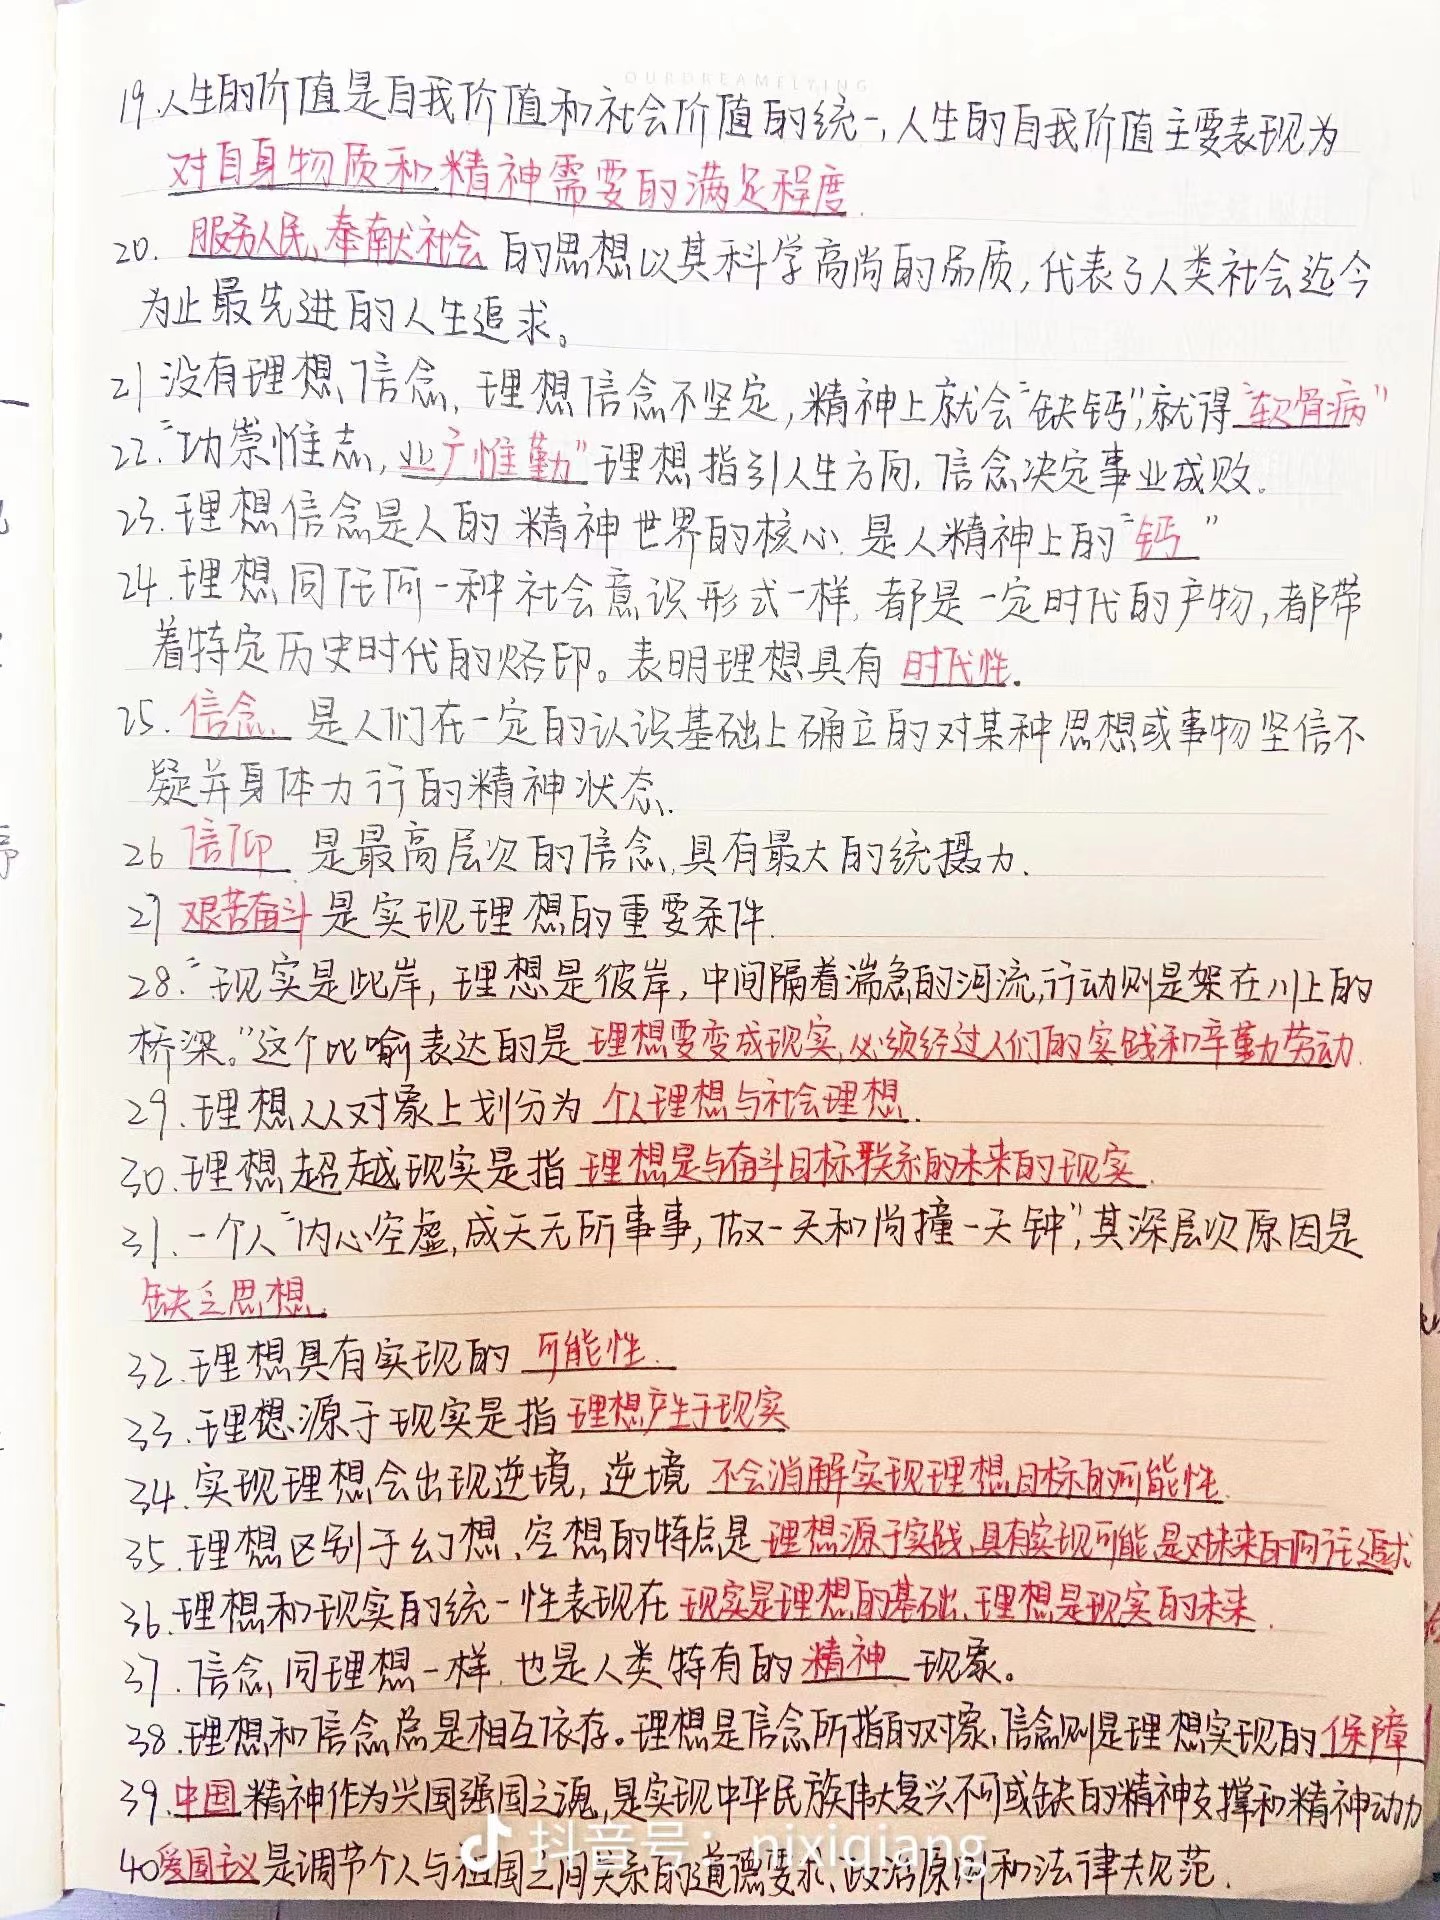 OURDREAMFLYING
19.人生的价值是自我价值和社会价值的统一,人生的自我价值主要表现为
对自身物质和精神需要的满足程度.
20. 服务人民、奉献社会 的思想以其科学高尚的品质,代表了人类社会迄今
为止最先进的人生追求。
21 没有理想信念、理想信念不坚定,精神上就会“缺钙”,就得“软骨病”
22.“功崇惟志,业广惟勤”理想指引人生方向,信念决定事业成败.
23.理想信念是人的精神世界的核心.是人精神上的“钙”
24.理想同任何一种社会意识形式一样,都是一定时代的产物,都带
着特定历史时代的烙印。表明理想具有 时代性.
25. 信念 是人们在一定的认识基础上确立的对某种思想或事物坚信不
疑并身体力行的精神状态.
26 信仰 是最高层次的信念,具有最大的统摄力.
27 艰苦奋斗 是实现理想的重要条件.
28.“现实是此岸,理想是彼岸,中间隔着湍急的河流,行动则是架在川上的
桥梁。”这个比喻表达的是 理想要变成现实,必须经过人们的实践和辛勤劳动.
29.理想从对象上划分为 个人理想与社会理想.
30.理想超越现实是指 理想是与奋斗目标联系的未来的现实.
31.一个人“内心空虚,成天无所事事,做一天和尚撞一天钟”,其深层次原因是
缺乏思想.
32.理想具有实现的 可能性.
33.理想源于现实是指 理想产生于现实
34.实现理想会出现逆境,逆境 不会消解实现理想目标的可能性.
35.理想区别于幻想、空想的特点是 理想源于实践,具有实现可能,是对未来的向往追求
36.理想和现实的统一性表现在 现实是理想的基础、理想是现实的未来.
37.信念同理想一样.也是人类特有的 精神 现象。
38.理想和信念总是相互依存。理想是信念所指的对象,信念则是理想实现的 保障
39.中国 精神作为兴国强国之魂,是实现中华民族伟大复兴不可或缺的精神支撑和精神动力
40爱国主义 是调节个人与祖国之间关系的道德要求、政治原则和法律夫规范.
抖音号: nixiqiang